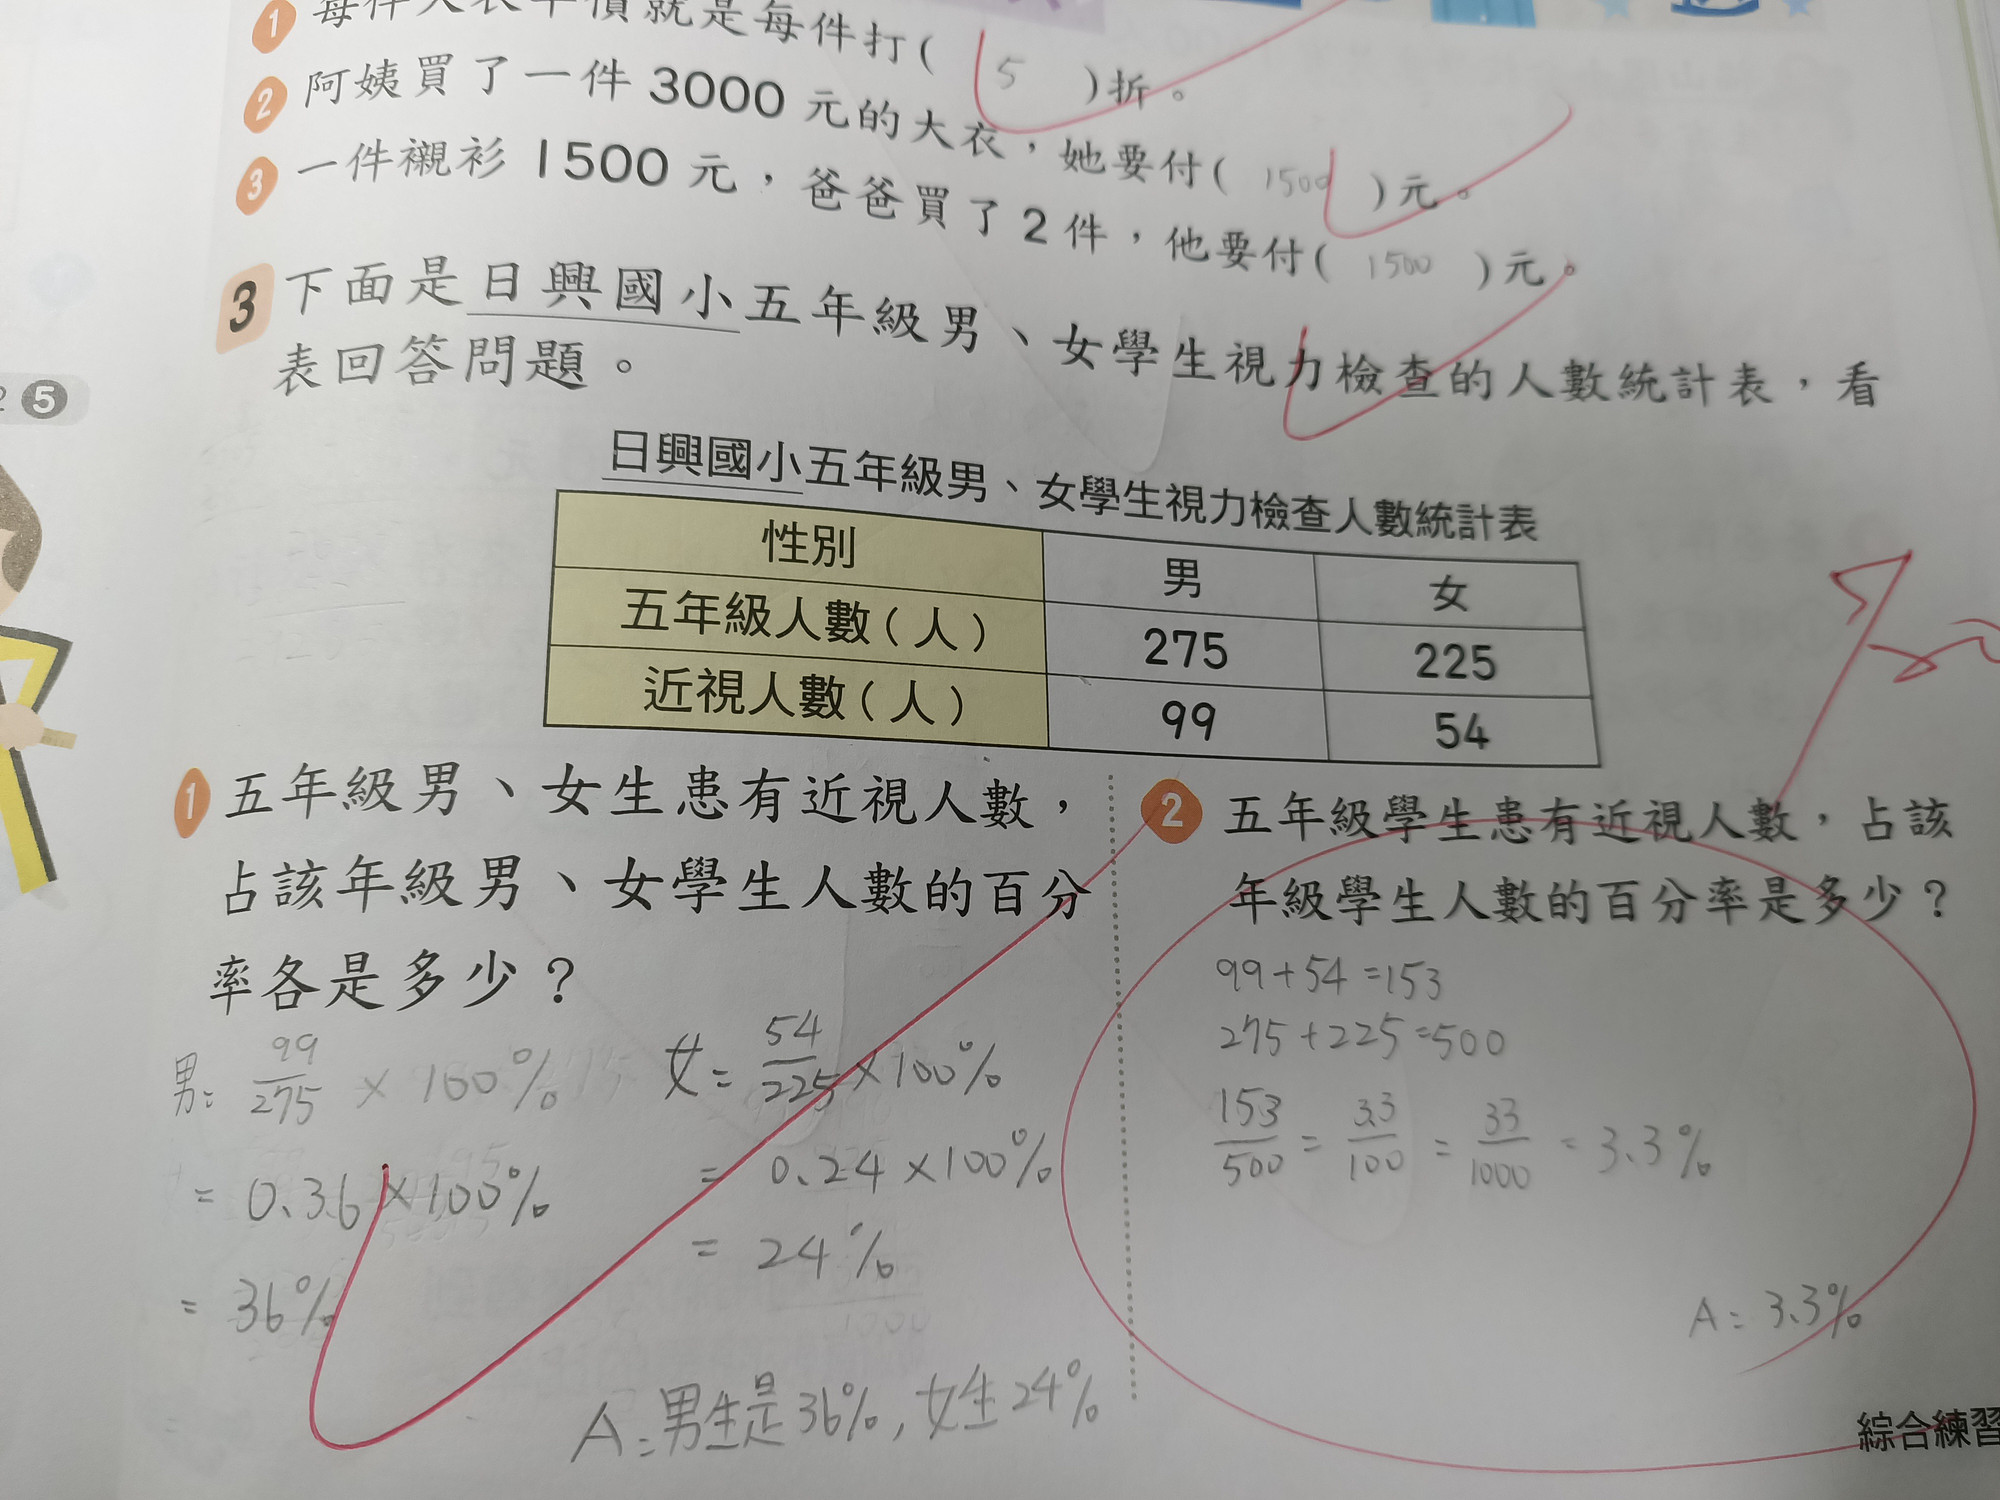 1 每件大衣半價就是每件打( 5 )折。
2 阿姨買了一件3000元的大衣，她要付( 1500 )元。
3 一件襯衫1500元，爸爸買了2件，他要付( 1500 )元。
3 下面是日興國小五年級男、女學生視力檢查的人數統計表，看
表回答問題。
5
日興國小五年級男、女學生視力檢查人數統計表
性別 男 女
五年級人數(人) 275 225
近視人數(人) 99 54
1 五年級男、女生患有近視人數，
占該年級男、女學生人數的百分
率各是多少？
男= 99/275 × 100%
= 0.36×100%
= 36%
女= 54/225 ×100%
= 0.24×100%
= 24%
A=男生是36%,女生24%
2 五年級學生患有近視人數，占該
年級學生人數的百分率是多少？
99+54=153
275+225=500
153/500 = 33/100 = 33/1000 = 3.3%
A= 3.3%
綜合練習